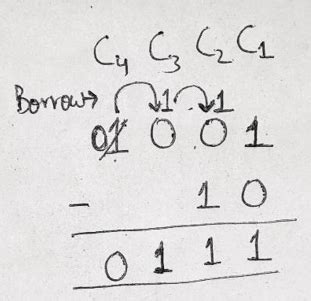 C₄ C₃ C₂ C₁
Borrow→ 1 1
01 0 0 1
- 1 0
0 1 1 1